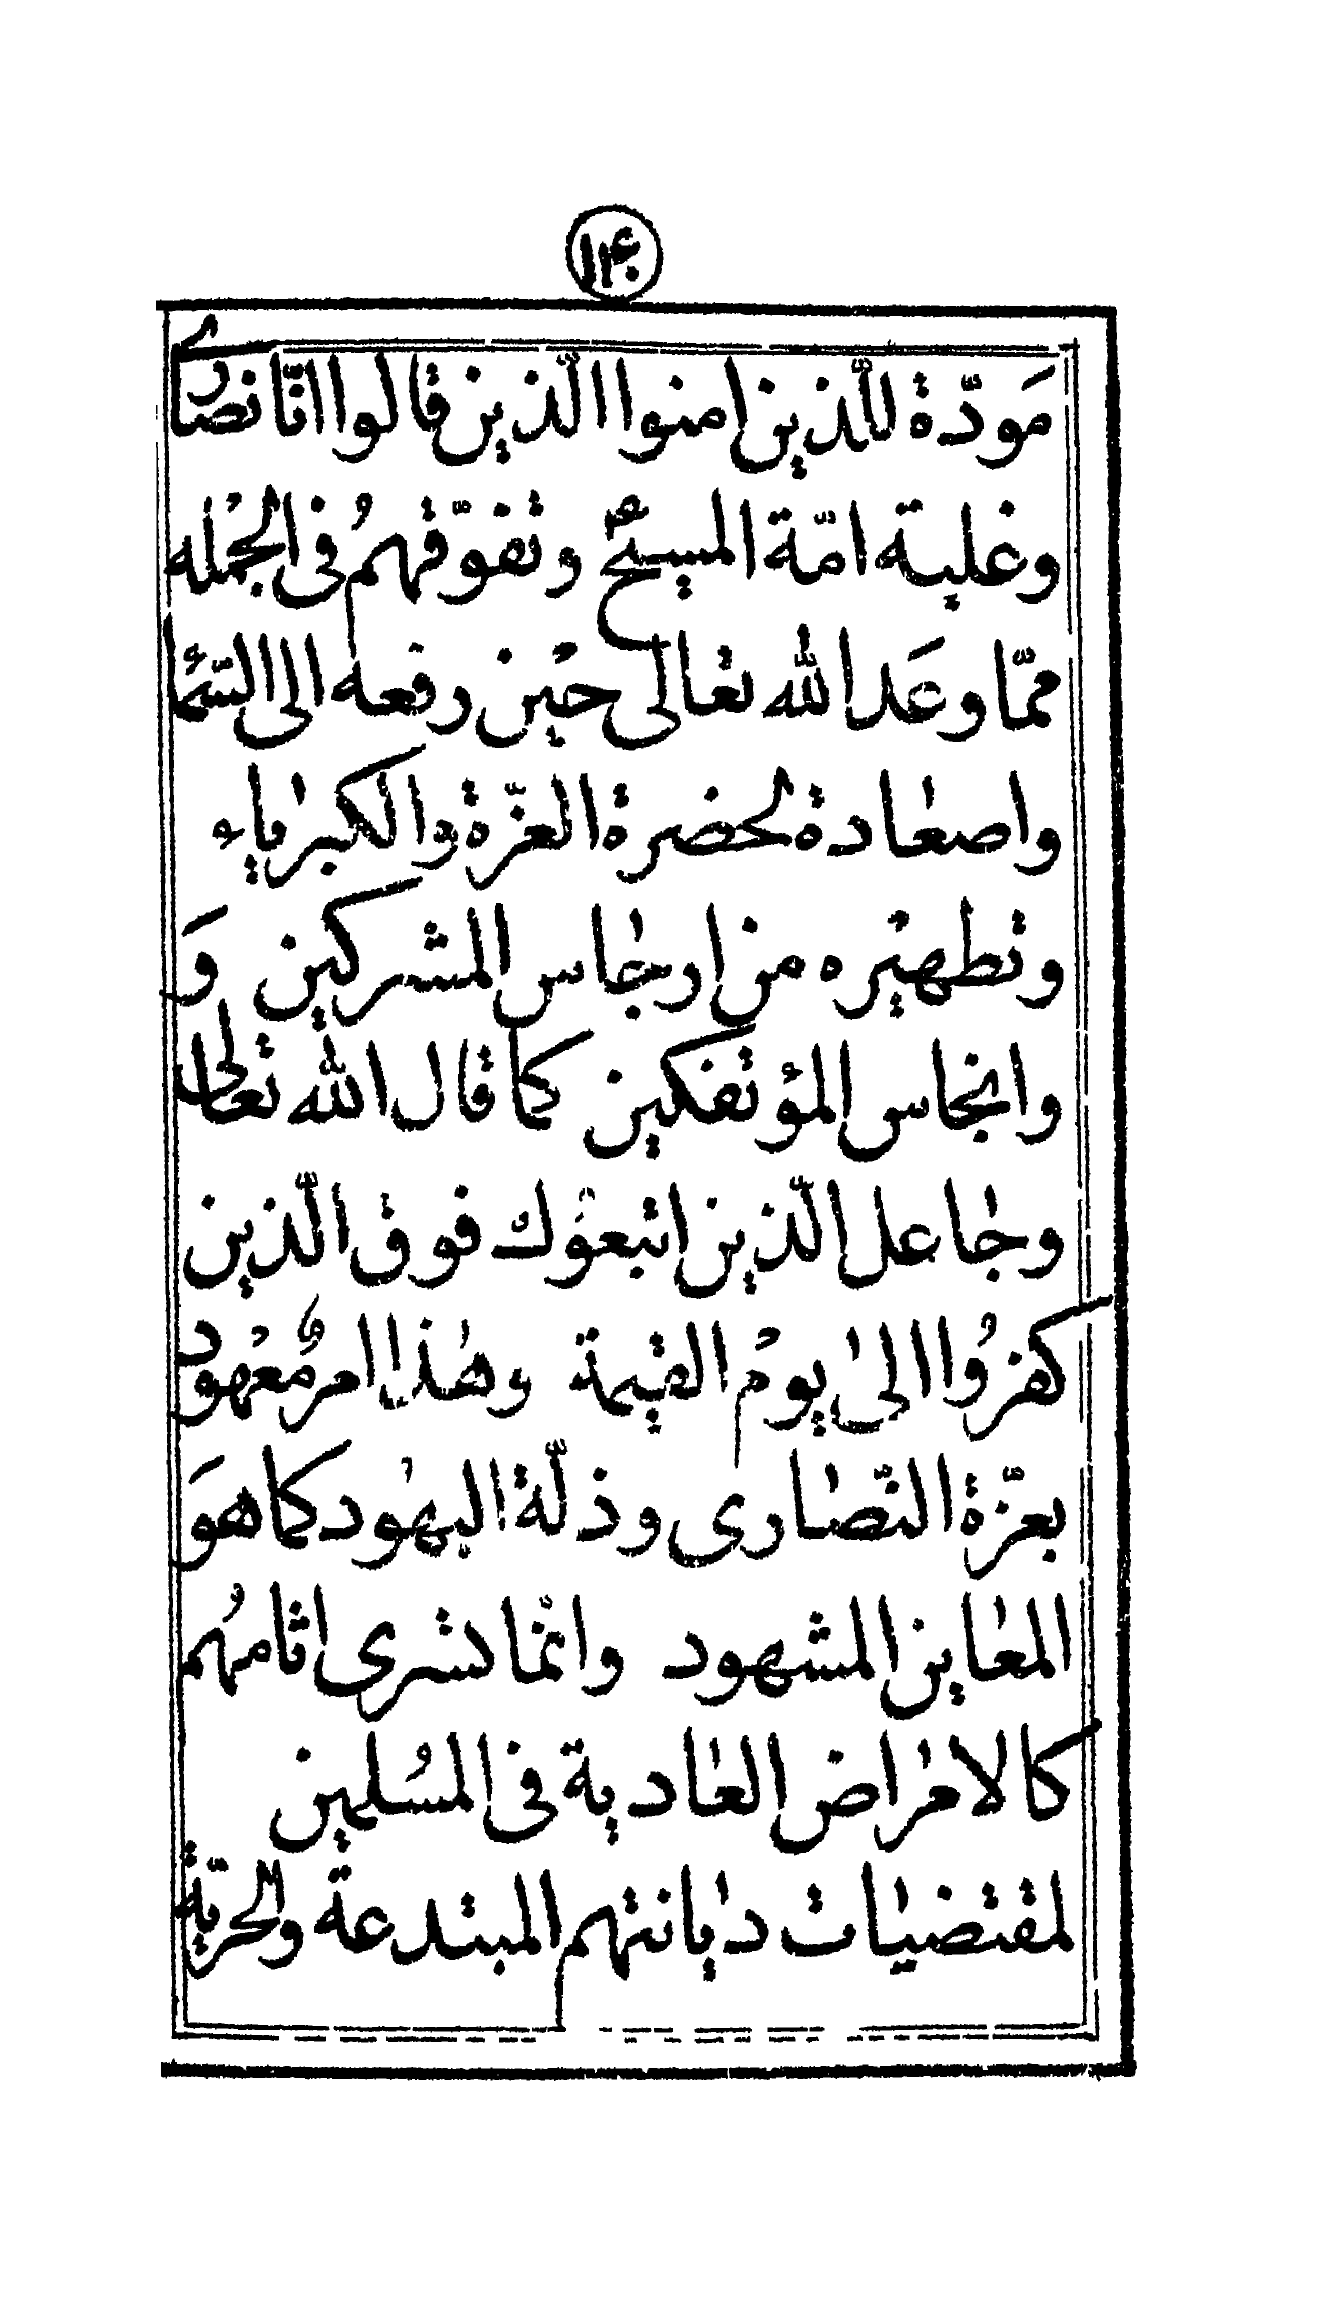 ۱۴۰
مَودّة للّذين امنوا الّذين قالوا انّا نصارى
وغلبة امّة المسيح وتفوّقهم فى الجمله
ممّا وعَد الله تعالى حين رفعه الى السّمآ
واصعاده لحضرة العزّة والكبرياء
وتطهيره من ارجاس المشركين وَ
وانجاس المؤتفكين كما قال الله تعالى
وجاعل الّذين اتبعوك فوق الّذين
كفرُوا الى يوم القيمة وهذا امرٌ معهود
بعزّة النّصارى وذلّة اليهود كما هوَ
المعاين المشهود وانما تسرى اثامهُم
كالامراض العادية فى المسُلمين
لمقتضيات ديانتهم المبتدعة والحريّة